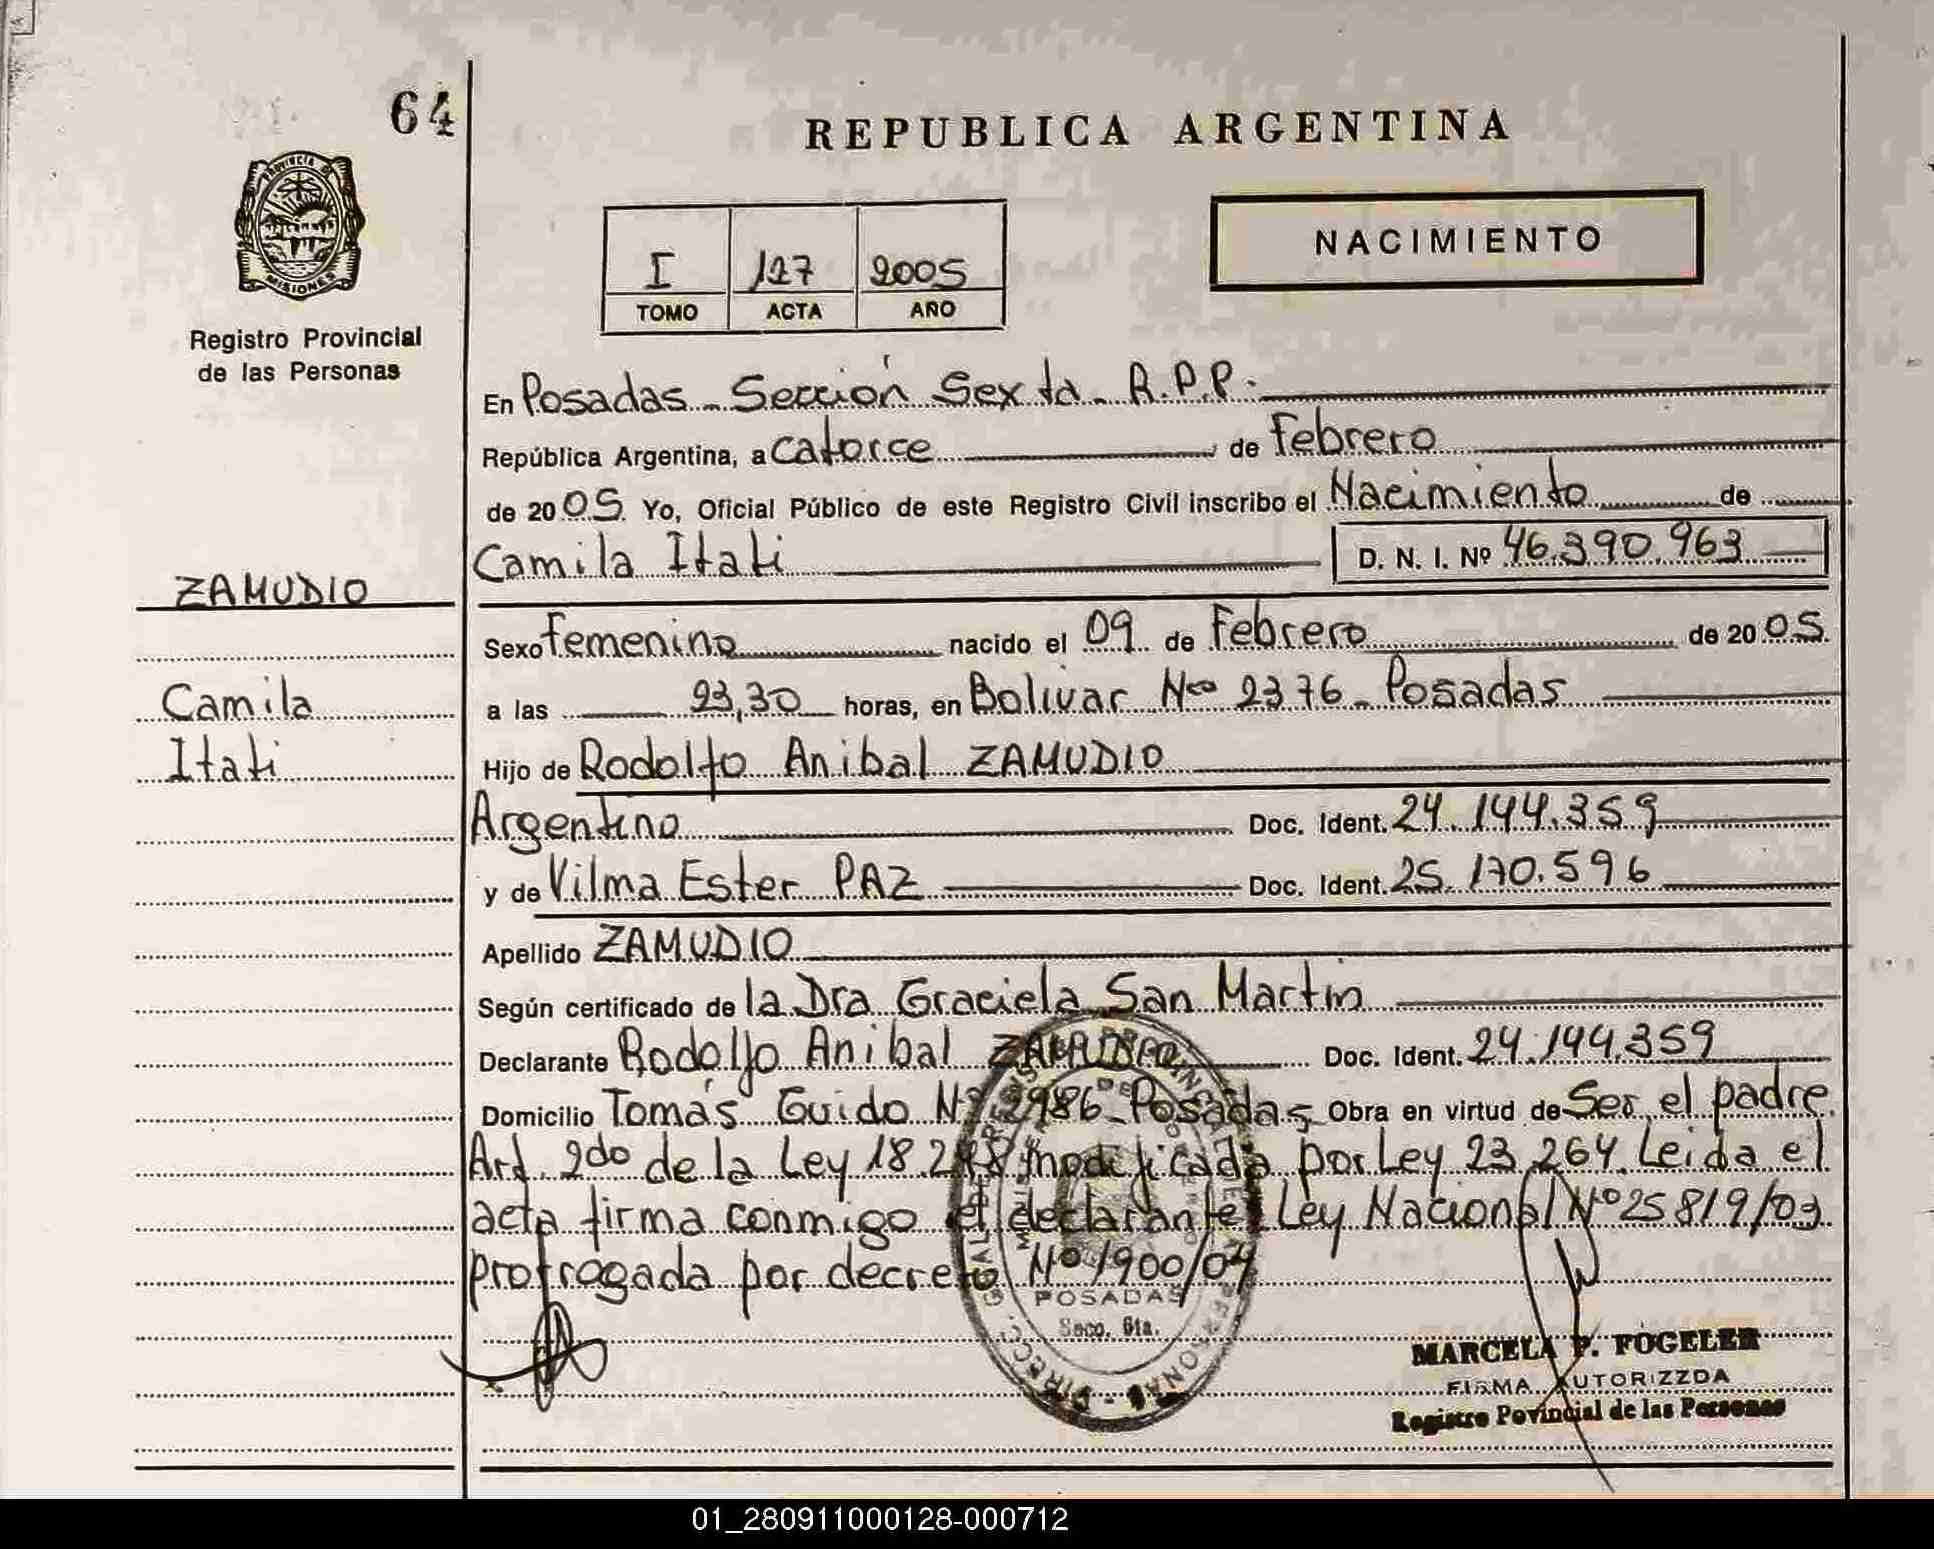 64
REPUBLICA ARGENTINA
PROVINCIA DE
MISIONES
Registro Provincial
de las Personas
I 127 2005
TOMO ACTA AÑO
NACIMIENTO
En Posadas - Sección Sexta - R.P.P.
República Argentina, a catorce de Febrero
de 2005. Yo, Oficial Público de este Registro Civil inscribo el Nacimiento de
Camila Itati D. N. I. Nº 46.390.963
ZAMUDIO
Camila
Itati
Sexo Femenino nacido el 09 de Febrero de 2005.
a las 23,30 horas, en Bolivar Nro 2376 - Posadas
Hijo de Rodolfo Anibal ZAMUDIO
Argentino Doc. Ident. 24.144.359
y de Vilma Ester PAZ Doc. Ident. 25.170.596
Apellido ZAMUDIO
Según certificado de la Dra Graciela San Martin
Declarante Rodolfo Anibal ZAMUDIO Doc. Ident. 24.144.359
Domicilio Tomás Guido Nº 2986 - Posadas Obra en virtud de Ser el padre.
Art. 2do de la Ley 18.248 modificada por Ley 23.264. Leida el
acta firma conmigo el declarante Ley Nacional Nº 25819/03
prorrogada por decreto Nº 1900/04
POSADAS
Secc. 6ta.
MARCELA P. FOGELER
FIRMA AUTORIZZDA
Registro Povincial de las Personas
01_280911000128-000712